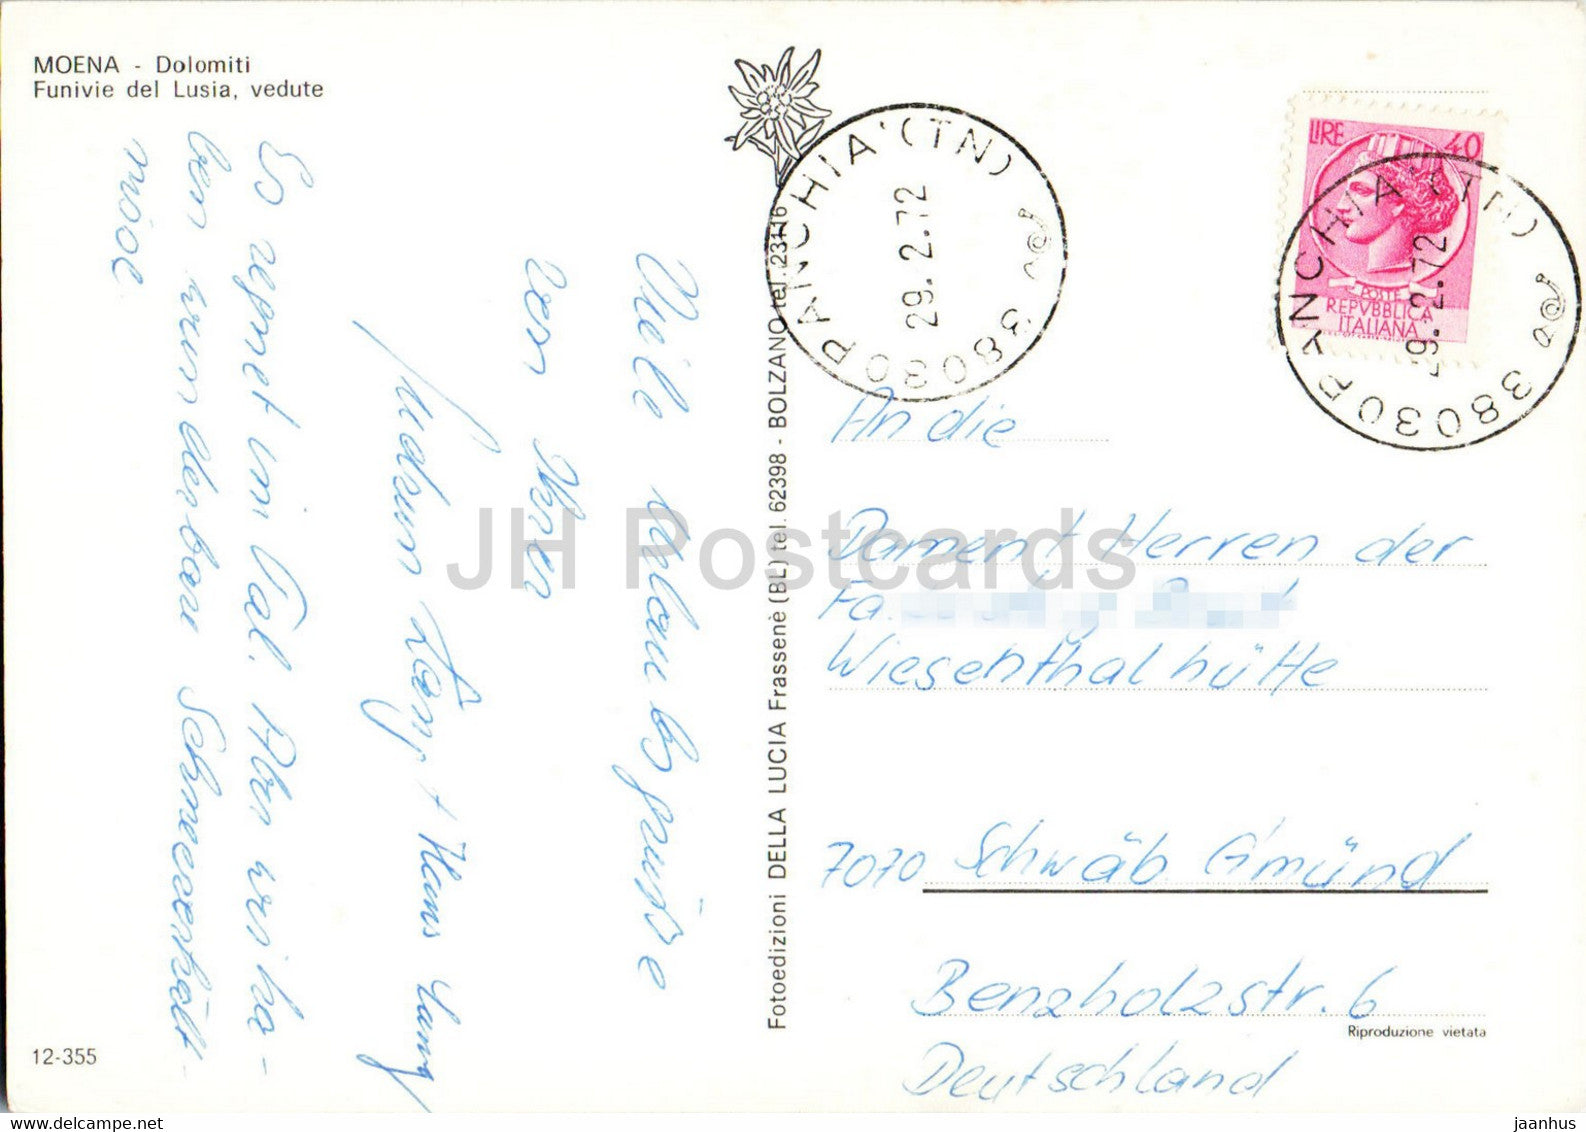 MOENA - Dolomiti
Funivie del Lusia, vedute
Es regnet im Tal. Aber wir ha-
ben wunderbare Schneeverhält-
nisse
Viele Urlaubsgrüße
von Ihren
Lang + Hans Lang
12-355
Fotoedizioni DELLA LUCIA Frassenè (BL) tel. 62398 - BOLZANO tel. 23116
PANCHIA' (TN)
29.2.72
38030
LIRE 40
POSTE
REPVBBLICA
ITALIANA
PANCHIA' (TN)
29.2.72
38030
An die
Damen + Herren der
Fa.
Wiesenthalhütte
7070 Schwäb. Gmünd
Benzholzstr. 6
Deutschland
Riproduzione vietata
JH Postcards
www.delcampe.net
jaanhus